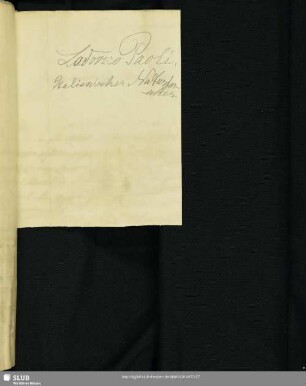 Lodovico Paoli,
Italienischer Naturfor-
scher
SLUB
Wir führen Wissen.